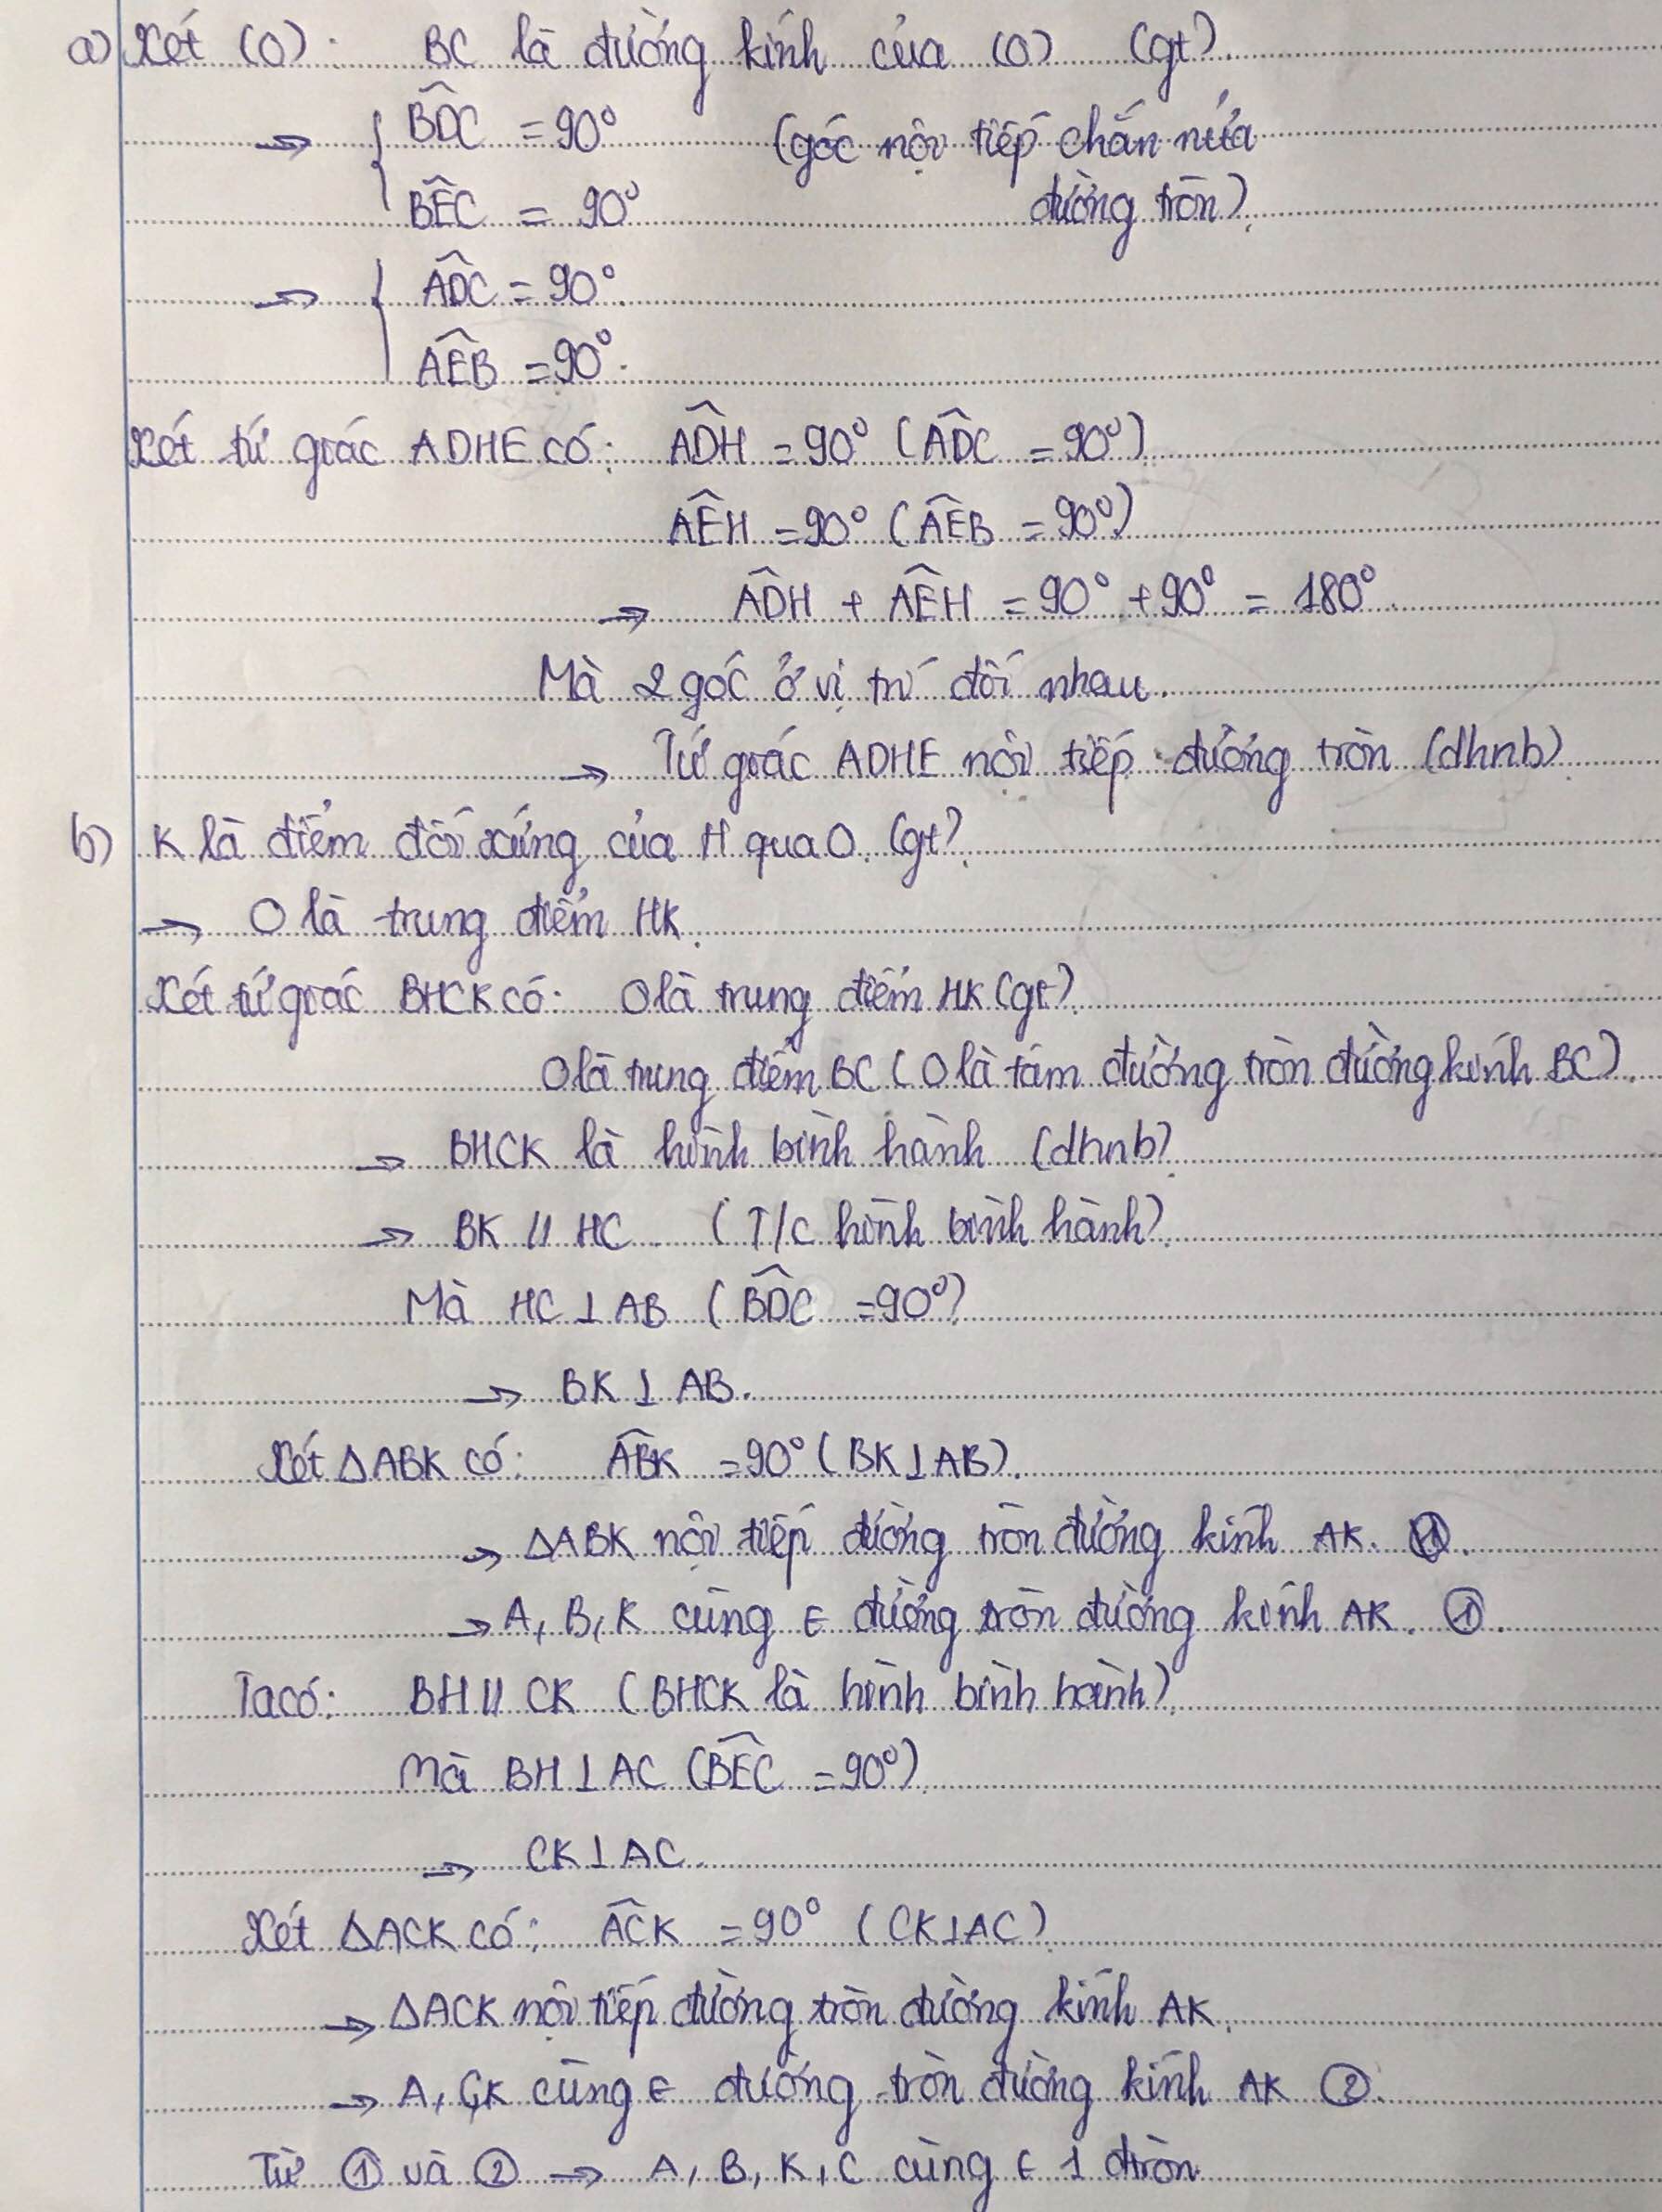 a) Xét (O): BC là đường kính của (O) (gt).
→ { B̂DC = 90° (góc nội tiếp chắn nửa
B̂EC = 90° đường tròn).
→ { ÂDC = 90°.
ÂEB = 90°.
Xét tứ giác ADHE có: ÂDH = 90° (ÂDC = 90°)
ÂEH = 90° (ÂEB = 90°)
→ ÂDH + ÂEH = 90° + 90° = 180°
Mà 2 góc ở vị trí đối nhau.
→ Tứ giác ADHE nội tiếp đường tròn (dhnb)
b) K là điểm đối xứng của H qua O (gt).
→ O là trung điểm HK.
Xét tứ giác BHCK có: O là trung điểm HK (gt)
O là trung điểm BC (O là tâm đường tròn đường kính BC).
→ BHCK là hình bình hành (dhnb)
→ BK // HC (T/c hình bình hành)
Mà HC ⊥ AB (B̂DC = 90°)
→ BK ⊥ AB.
Xét ΔABK có: ÂBK = 90° (BK ⊥ AB).
→ ΔABK nội tiếp đường tròn đường kính AK.
→ A, B, K cùng ∈ đường tròn đường kính AK. ①.
Ta có: BH // CK (BHCK là hình bình hành)
Mà BH ⊥ AC (B̂EC = 90°)
→ CK ⊥ AC.
Xét ΔACK có: ÂCK = 90° (CK ⊥ AC)
→ ΔACK nội tiếp đường tròn đường kính AK.
→ A, C, K cùng ∈ đường tròn đường kính AK ②.
Từ ① và ② → A, B, K, C cùng ∈ 1 đtròn